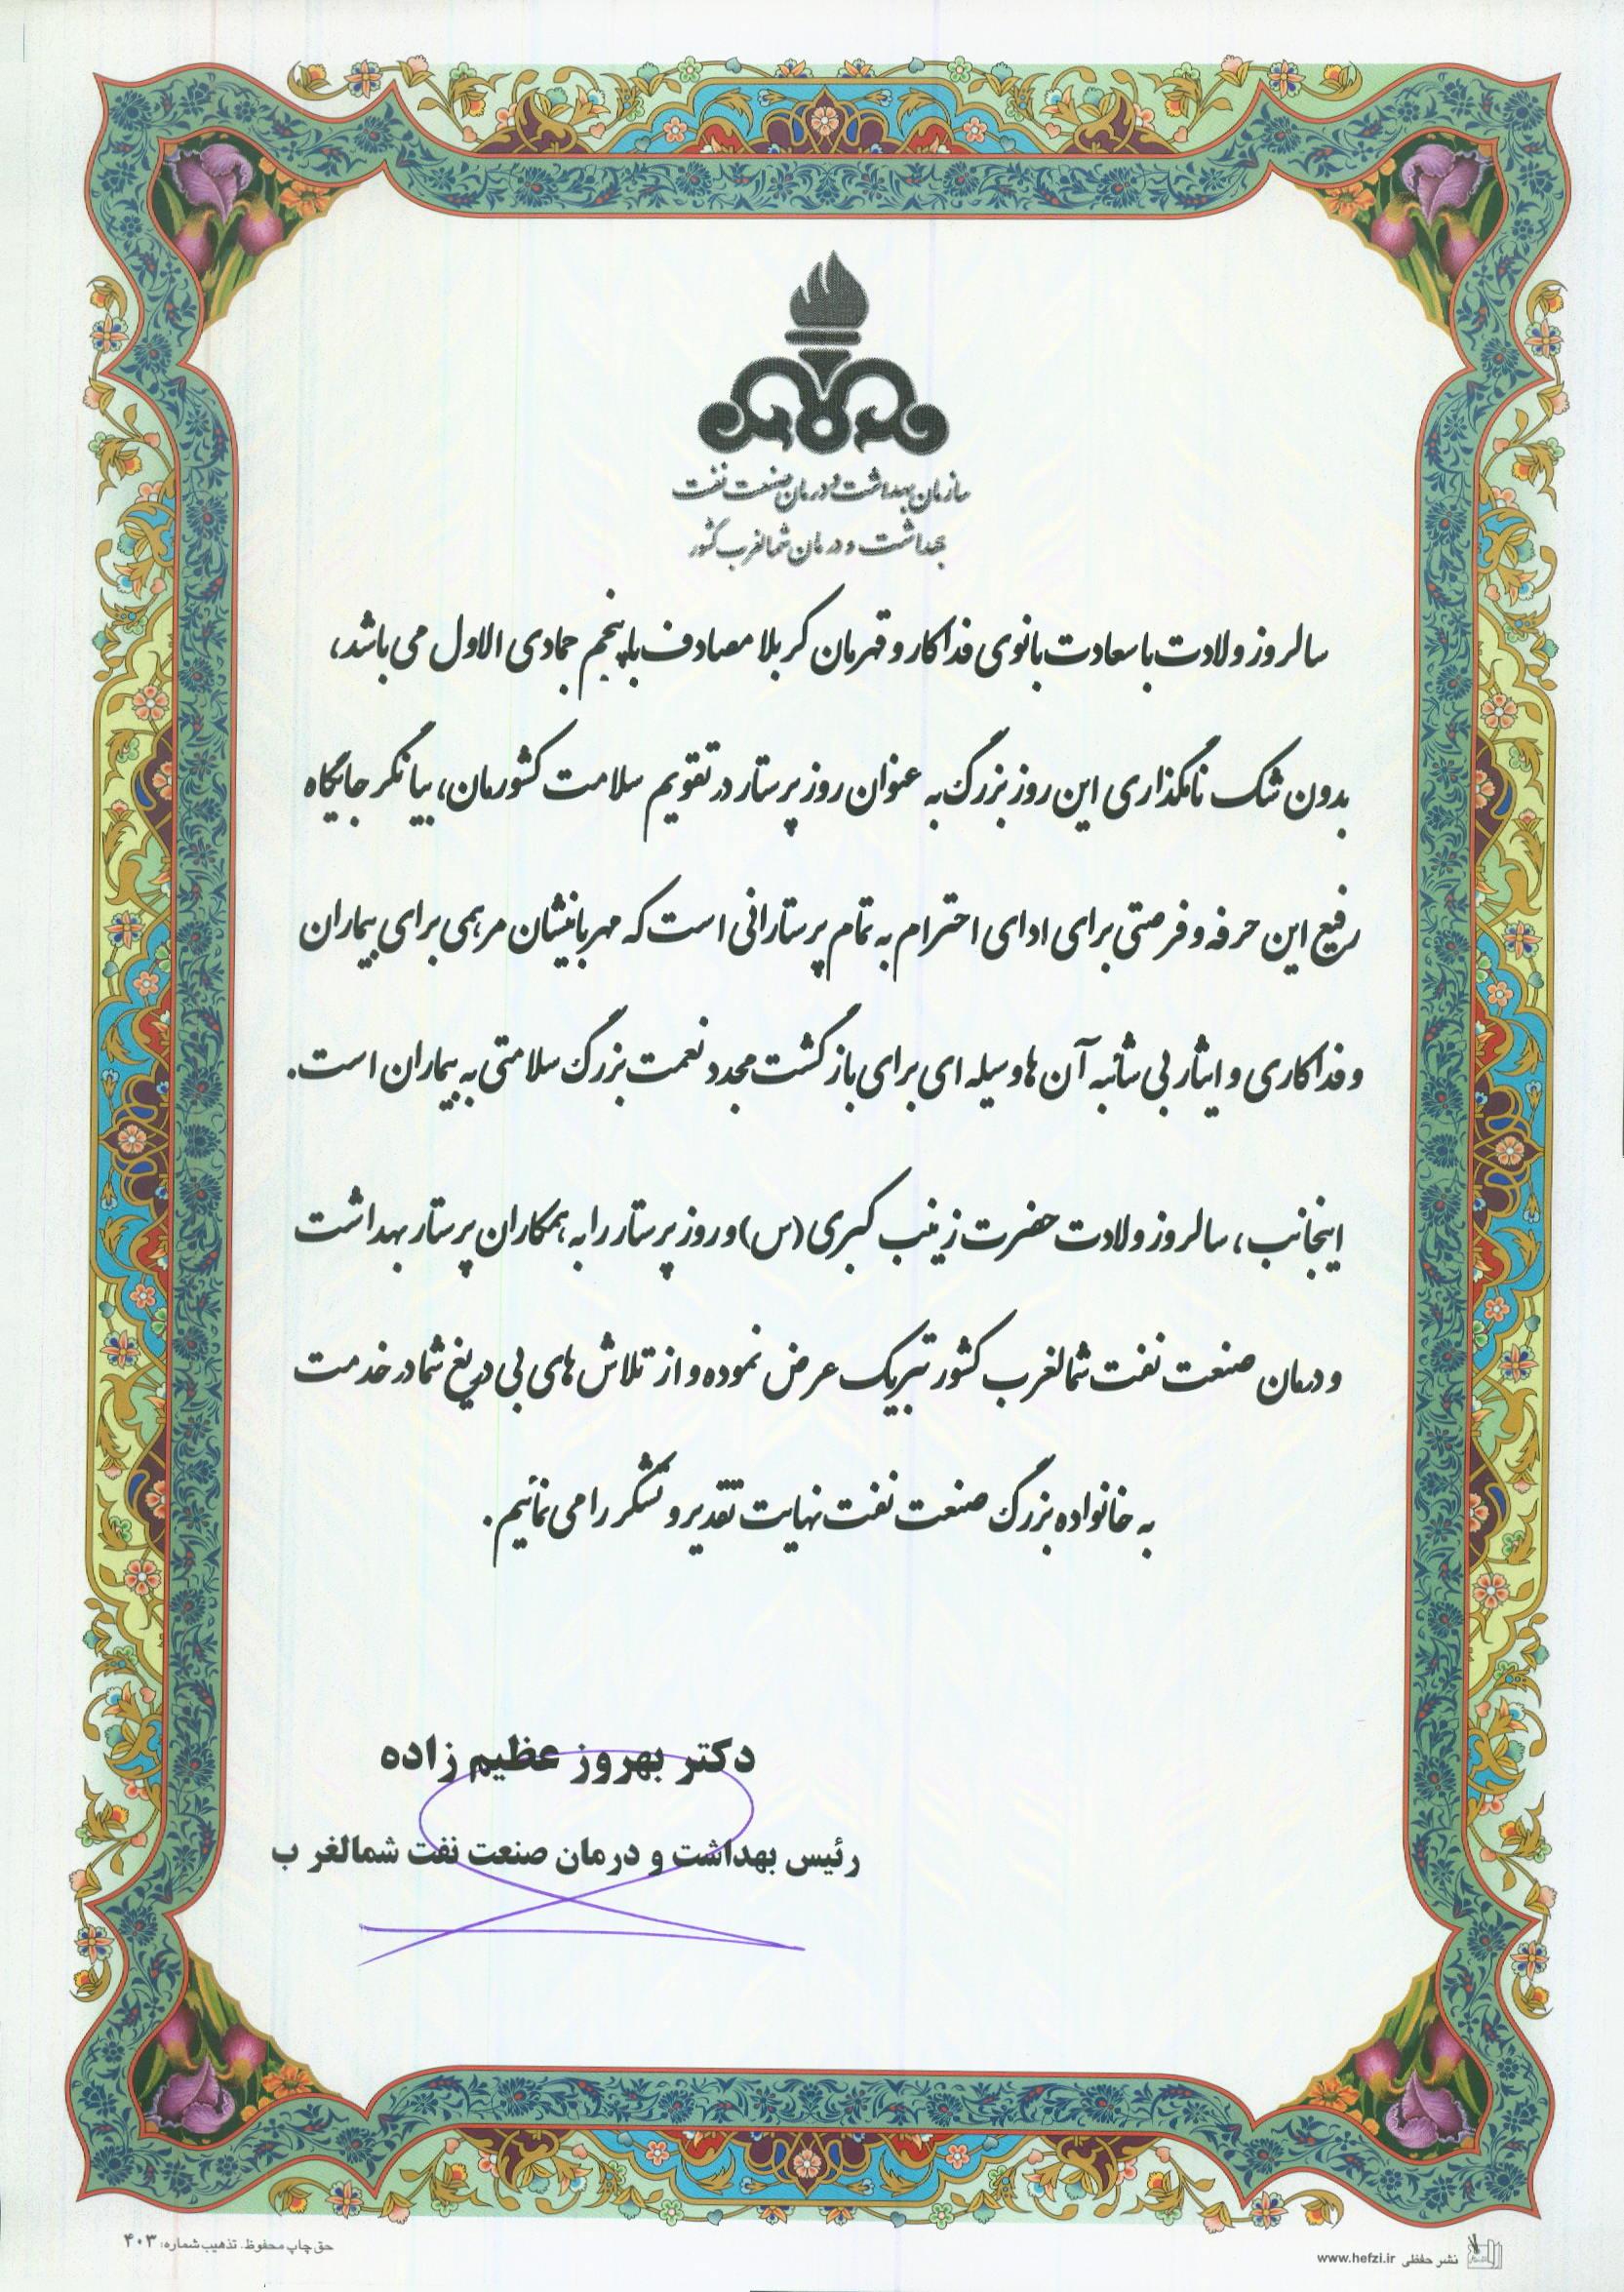 سازمان بهداشت و درمان صنعت نفت
بهداشت و درمان شمالغرب کشور
سالروز ولادت با سعادت بانوی فداکار و قهرمان کربلا مصادف با پنجم جمادی الاول می باشد،
بدون شک نامگذاری این روز بزرگ به عنوان روز پرستار در تقویم سلامت کشورمان، بیانگر جایگاه
رفیع این حرفه و فرصتی برای ادای احترام به تمام پرستارانی است که مهربانیشان مرهمی برای بیماران
و فداکاری و ایثار بی شائبه آن ها وسیله ای برای بازگشت مجدد نعمت بزرگ سلامتی به بیماران است.
اینجانب، سالروز ولادت حضرت زینب کبری (س) و روز پرستار را به همکاران پرستار بهداشت
و درمان صنعت نفت شمالغرب کشور تبریک عرض نموده و از تلاش های بی دریغ شما در خدمت
به خانواده بزرگ صنعت نفت نهایت تقدیر و تشکر را می نمائیم.
دکتر بهروز عظیم زاده
رئیس بهداشت و درمان صنعت نفت شمالغر ب
نشر حفظی www.hefzi.ir
حق چاپ محفوظ. تذهیب شماره: ۴۰۳